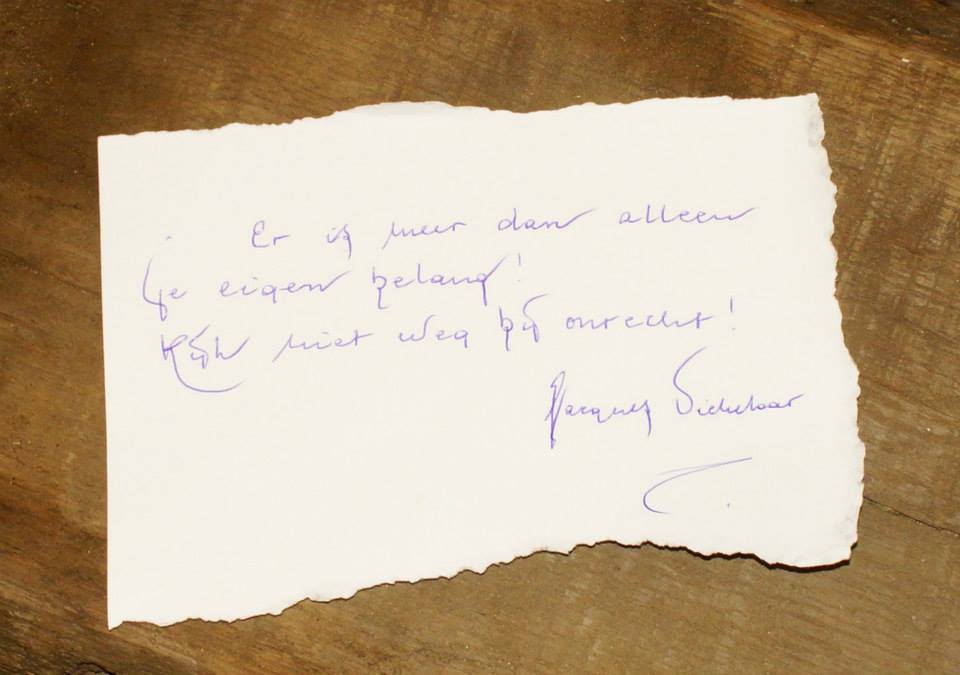 Er is meer dan alleen
je eigen belang!
Kijk niet weg bij onrecht!
Jacques